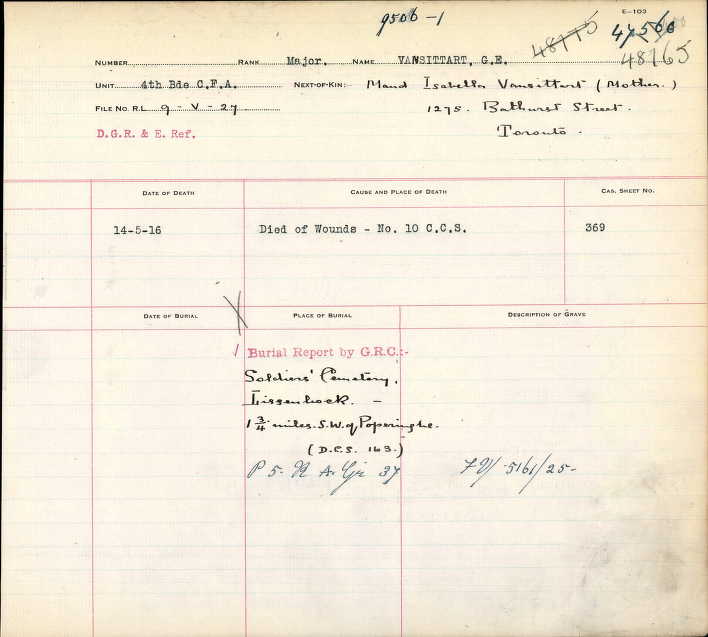 9506-1
E-103
48775 47506
48765
NUMBER RANK Major. NAME VANSITTART, G.E.
UNIT 4th Bde C.F.A. NEXT-OF-KIN:- Maud Isabella Vansittart (Mother.)
FILE NO. R.L. 9 - V - 27 1275. Bathurst Street.
D.G.R. & E. Ref. Toronto.
DATE OF DEATH CAUSE AND PLACE OF DEATH CAS. SHEET NO.
14-5-16 Died of Wounds - No. 10 C.C.S. 369
DATE OF BURIAL PLACE OF BURIAL DESCRIPTION OF GRAVE
Burial Report by G.R.C.:-
Soldiers' Cemetery,
Lissenhoek. -
1 3/4 miles. S.W. of Poperinghe.
(D.C.S. 163.)
P 5. R A. Gr 37 5161/25-